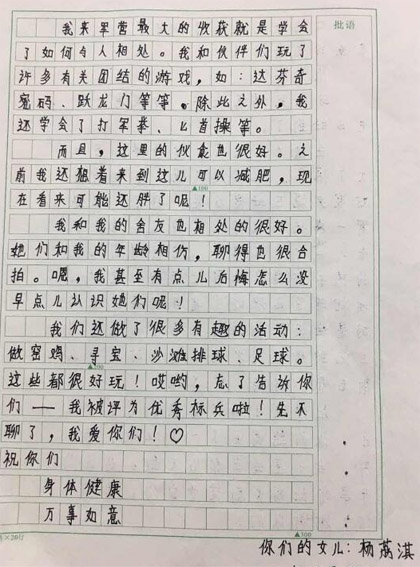 批语
我来军营最大的收获就是学会
了如何与人相处。我和伙伴们玩了
许多有关团结的游戏，如：达芬奇
密码、跃龙门等等。除此之外，我
还学会了打军拳、匕首操等。
而且，这里的伙食也很好。之
前我还想着来到这儿可以减肥，现
在看来可能还胖了呢！
▲100
我和我的舍友也相处的很好。
她们和我的年龄相仿，聊得也很合
拍。嗯，我甚至有点儿后悔怎么没
早点儿认识她们呢！
我们还做了很多有趣的活动：
做窑鸡、寻宝、沙滩排球、足球。
这些都很好玩！哎哟，忘了告诉你
们——我被评为优秀标兵啦！先不
聊了，我爱你们！♡
祝你们
身体健康
万事如意
▲300
你们的女儿：杨